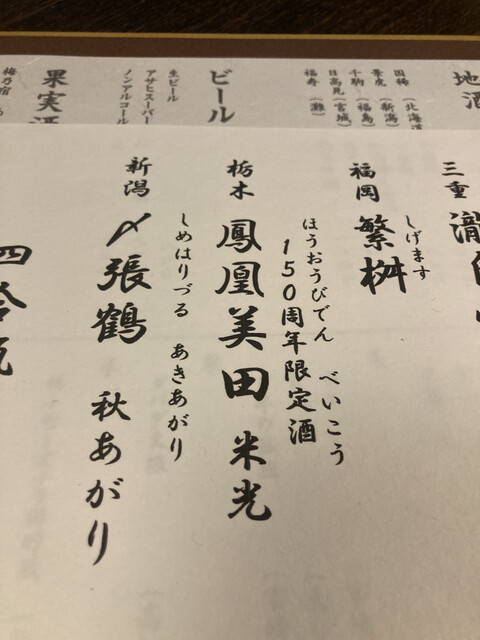 地酒
国稀（北海道
景虎（新潟）
千駒（福島）
日高見（宮城）
福寿（灘）
ビール
生ビール
アサヒスーパー
ノンアルコール
果実酒
梅乃宿
三重
しげます
福岡 繁桝
ほうおうびでん べいこう
150周年限定酒
栃木 鳳凰美田 米光
しめはりづる あきあがり
新潟 〆張鶴 秋あがり
四